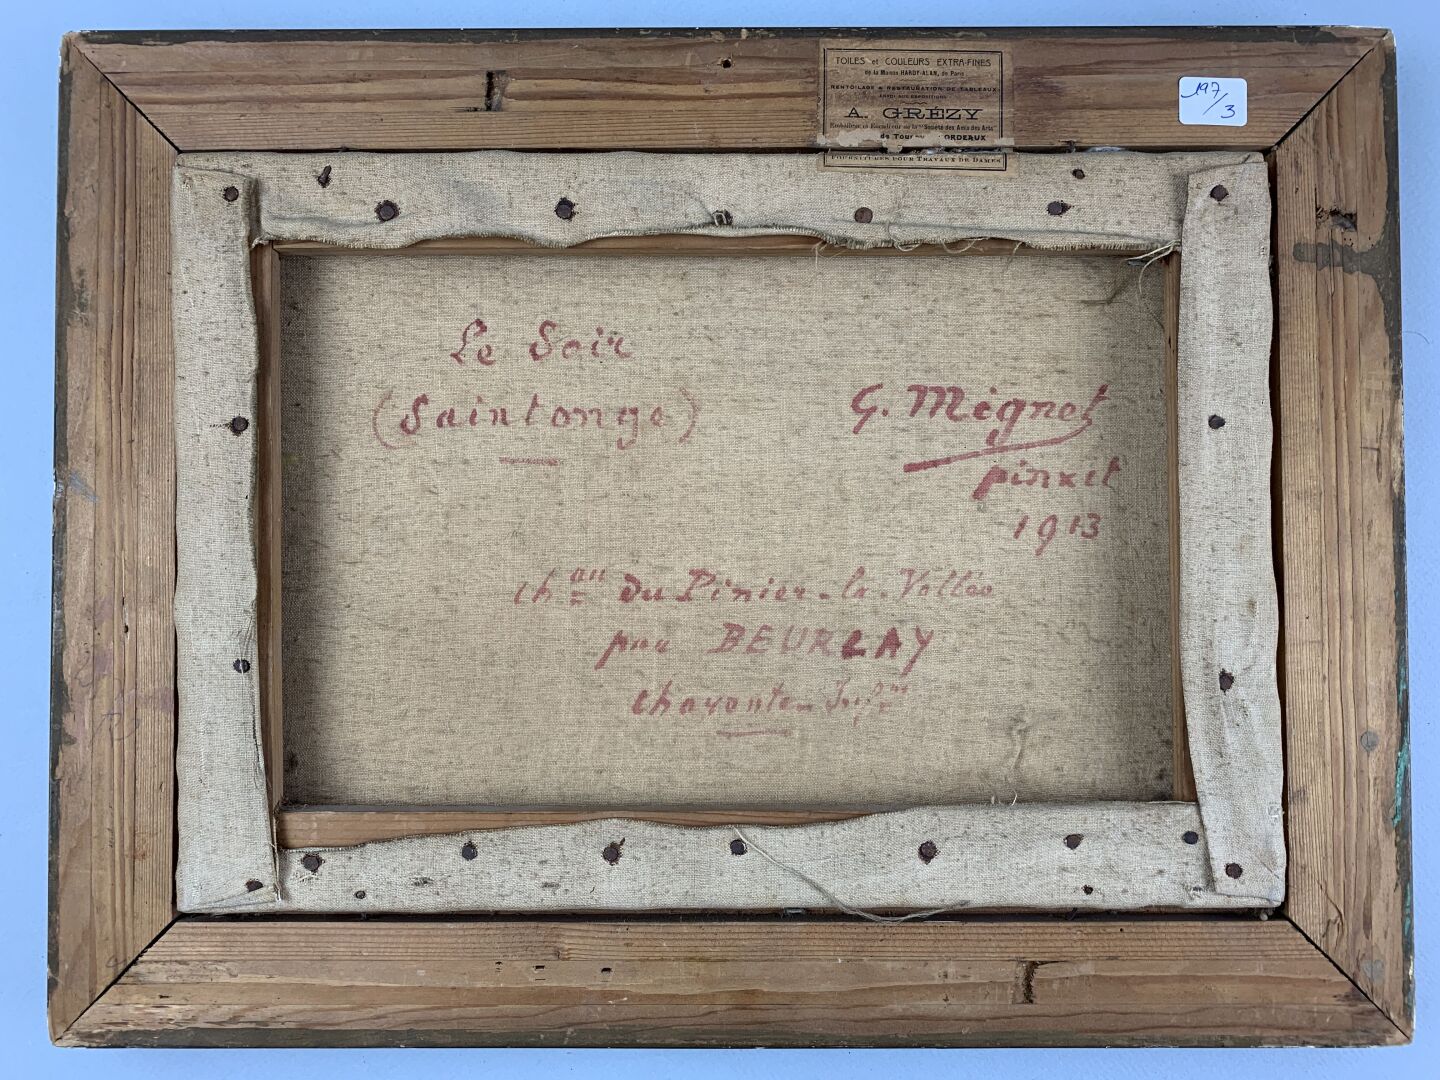 TOILES et COULEURS EXTRA-FINES
de la Maison HARDY-ALAN, de Paris
RENTOILAGE & RESTAURATION DE TABLEAUX
ENVOI AUX EXPOSITIONS
A. GRÉZY
Emballeur et Expéditeur de la "Société des Amis des Arts
de Tou ORDEAUX
FOURNITURES POUR TRAVAUX DE DAMES
197/3
Le Soir
(Saintonge)
G. Mignot
pinxit
1913
chau du Pinier-la-Vallée
par BEURLAY
charente Infre